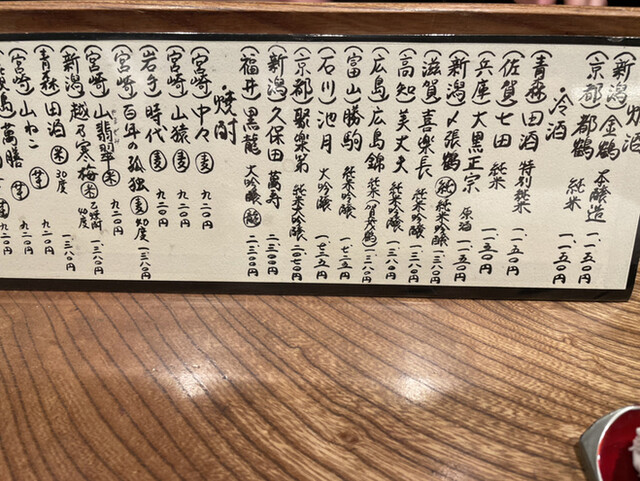 ・燗酒
(新潟) 金鶴 本醸造 一、一五〇円
(京都) 都鶴 純米 一、一五〇円
・冷酒
(青森) 田酒 特別純米 一、一五〇円
(佐賀) 七田 純米 一、一五〇円
(兵庫) 大黒正宗 原酒 一、一五〇円
(新潟) 〆張鶴 純 純米吟醸 一、三八〇円
(滋賀) 喜楽長 純米吟醸 一、三八〇円
(高知) 美丈夫 純米吟醸 一、三八〇円
(広島) 広島錦 純米 一、三八〇円
(富山) 勝駒 純米吟醸 一、七二五円
(石川) 池月 大吟醸 一、七二五円
(京都) 聚楽第 純米大吟醸
(新潟) 久保田 萬寿 純米大吟醸 二、三〇〇円
(福井) 黒龍 大吟醸 龍 二、三〇〇円
・焼酎
(宮崎) 中々 麦 九二〇円
(宮崎) 山猿 麦 九二〇円
(岩手) 時代 麦 九二〇円
(宮崎) 百年の孤独 麦 40度 一、三八〇円
(宮崎) 山翡翠 米 九二〇円
(新潟) 越乃寒梅 米 乙焼酎 40度 一、三八〇円
(青森) 田酒 米 30度 一、三八〇円
(宮崎) 山ねこ 芋 九二〇円
萬膳 芋 九二〇円